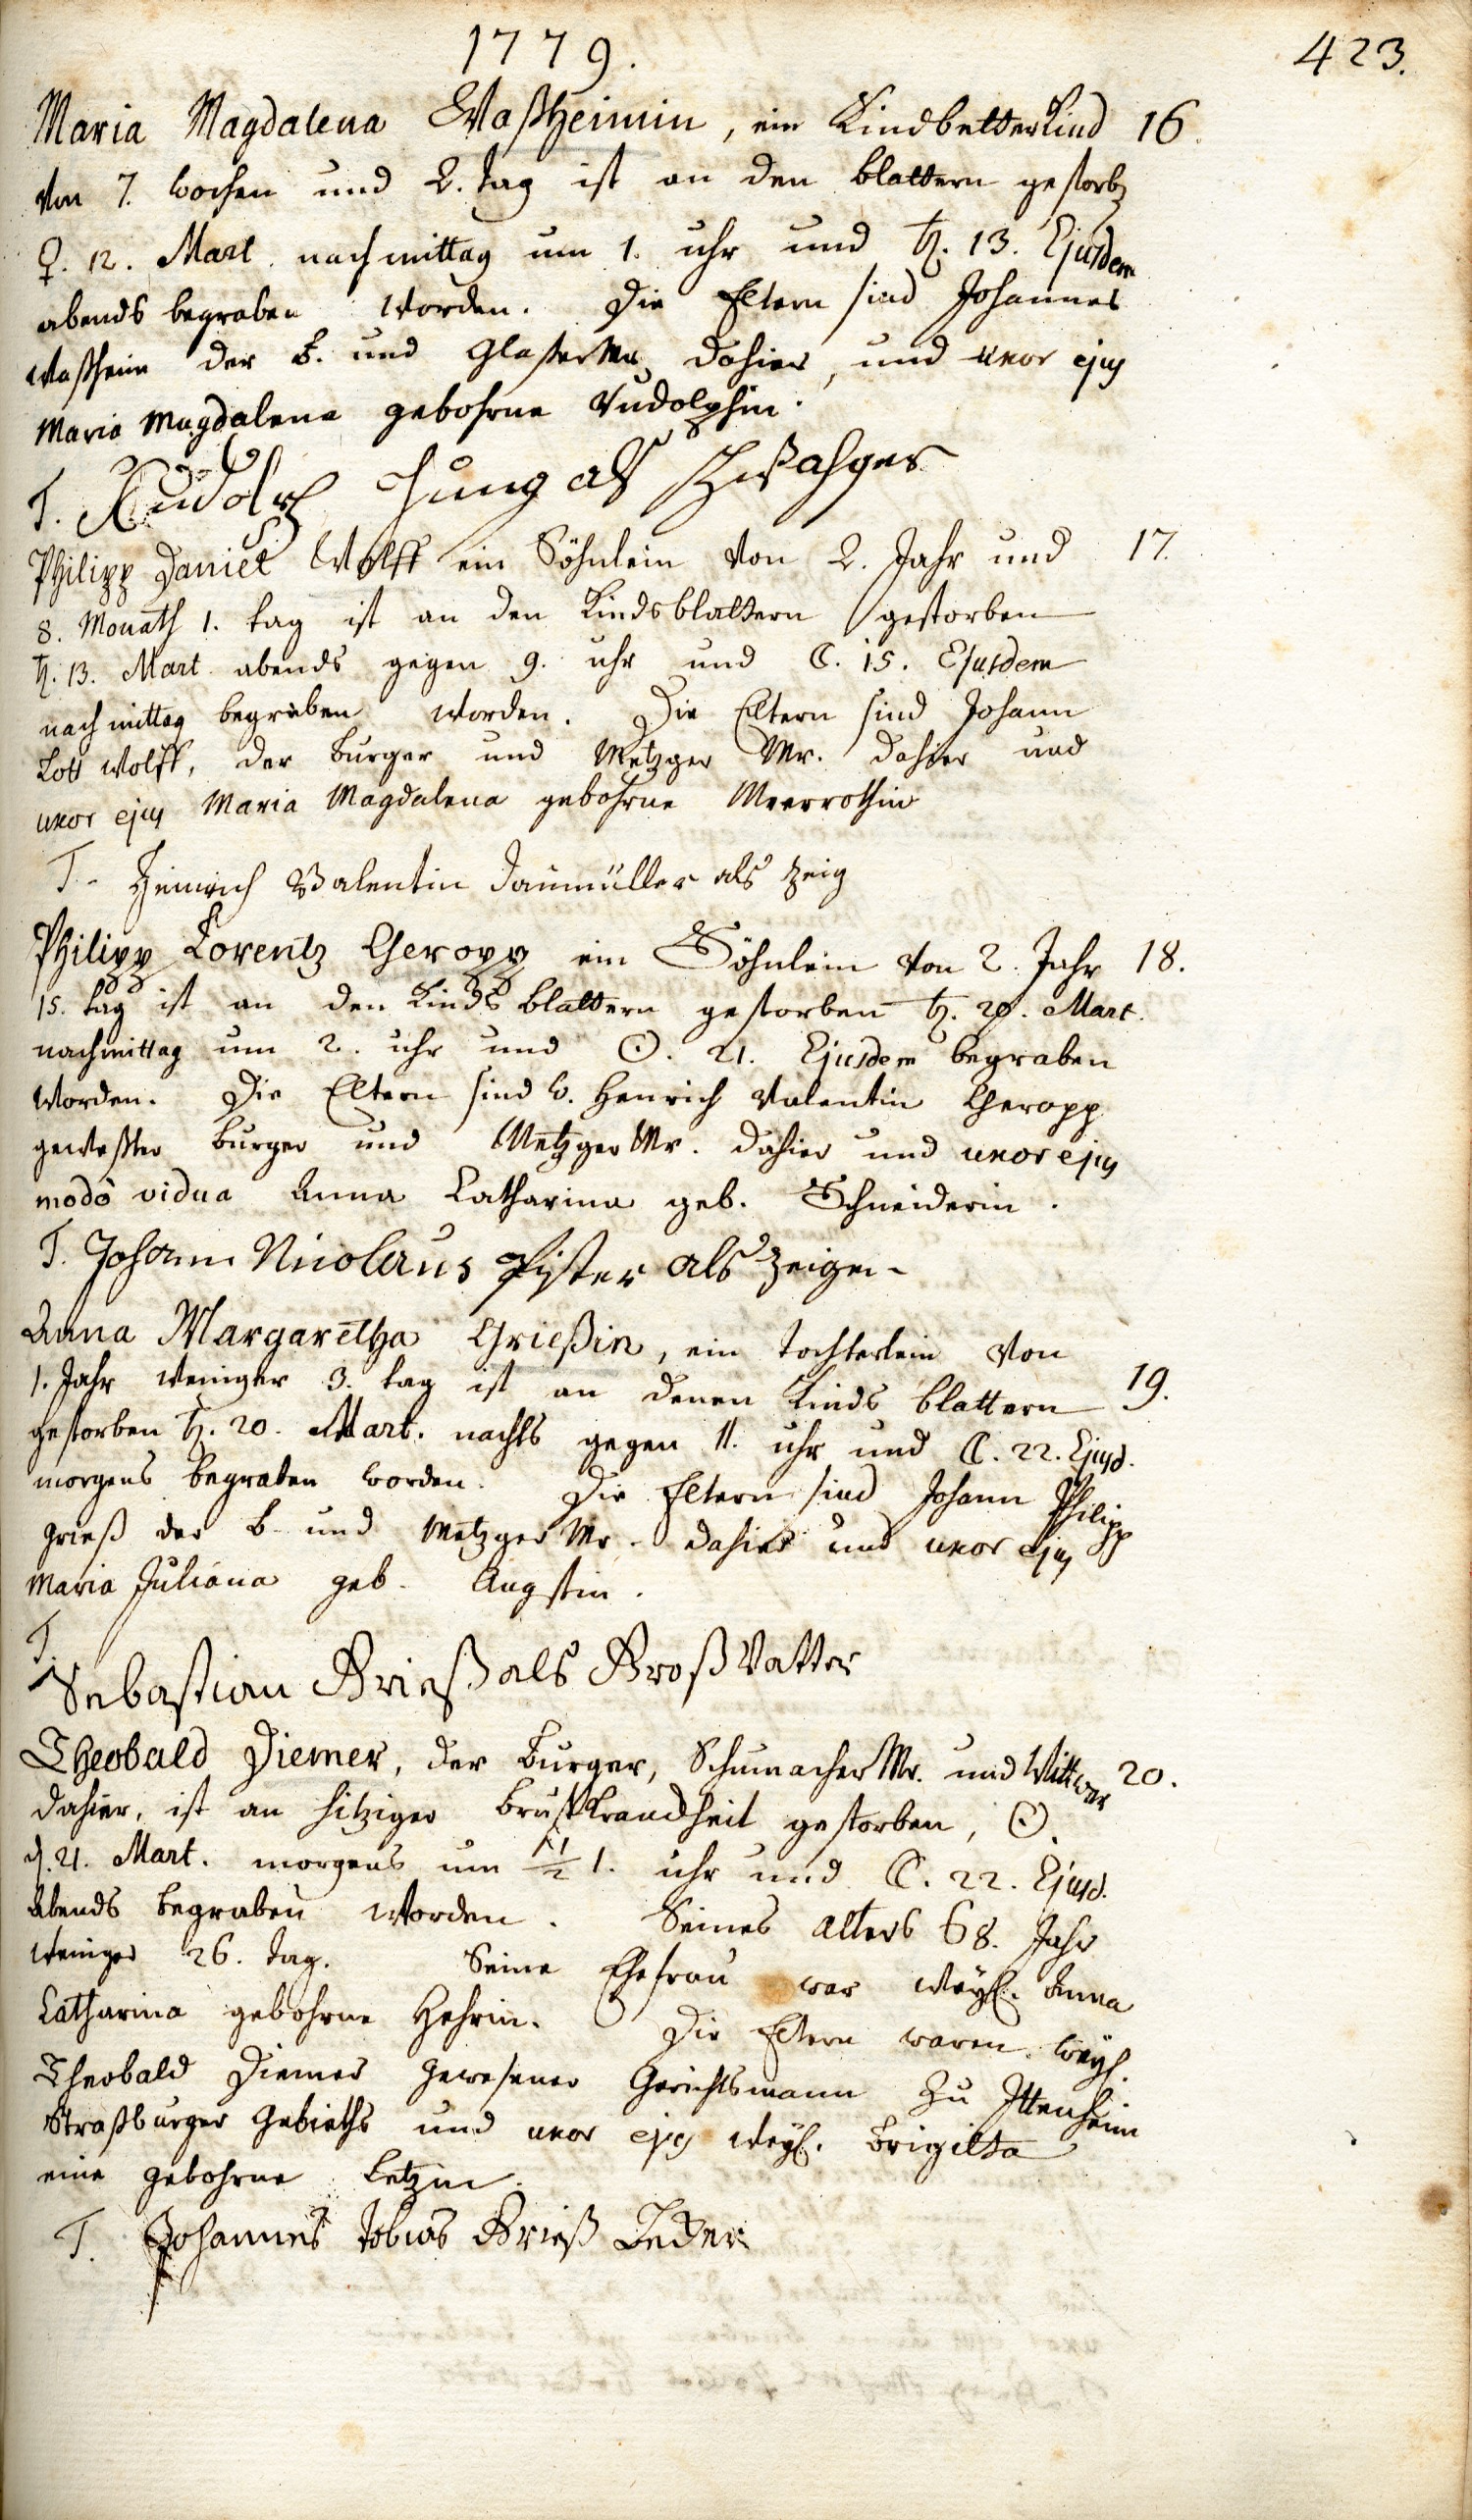 1779.
423.
Maria Magdalena Waßheimin, ein Kindbetterkind 16.
von 7. wochen und 2. tag ist an den blattern gestorb
♀. 12. Mart. nachmittag um 1. uhr und ♄. 13. Ejusdem
abends begraben worden. Die Eltern sind Johannes
Waßheim der B. und Glaser Mr. dahier, und uxor ejus
Maria Magdalena gebohrne Rudolphin.
T. Rudolph Jung als
Philipp Daniel Wolff ein Söhnlein von 2. Jahr und 17.
8. Monath 1. tag ist an den Kindsblattern gestorben
♄. 13. Mart. abends gegen 9. uhr und ☾. 15. Ejusdem
nachmittag begraben worden. Die Eltern sind Johann
Lott Wolff, der burger und Metzger Mr. dahier und
uxor ejus Maria Magdalena gebohrne Meerrothin
T. Heinrich Valentin Daumüller als zeig
Philipp Lorentz Gheropp ein Söhnlein von 2. Jahr 18.
15. tag ist an den Kinds blattern gestorben ♄. 20. Mart.
nachmittag um 2. uhr und ☉. 21. Ejusdem begraben
worden. Die Eltern sind w. Henrich Valentin Gheropp
geweßter burger und Metzger Mr. dahier und uxor ejus
modò vidua Anna Catharina geb. Schneiderin.
T. Johann Nicolaus Pister als zeigen
Anna Margaretha Grießin, ein tochterlein von
1. Jahr weniger 3. tag ist an denen Kinds blattern 19.
gestorben ♄. 20. Mart. nachts gegen 11. uhr und ☾. 22. Ejusd.
morgens begraben worden. Die Eltern sind Johann Philipp
Grieß der B. und Metzger Mr. dahier und uxor ejus
Maria Juliana geb. Angstin.
T.
Sebastian Grieß als Groß Vatter
Theobald Diemer, der burger, Schumacher Mr. und Wittwer 20.
dahier, ist an hitziger brustkrandheit gestorben, ☉.
d. 21. Mart. morgens um ½ 1. uhr und ☾. 22. Ejusd.
Abends begraben worden. Seines alters 68. Jahr
weniger 26. tag. Seine Ehefrau war weyl. Anna
Catharina gebohrne Hehrin. Die Eltern waren weyl.
Theobald Diemer gewesener Gerichtsmann zu Ittenheim
Straßburger Gebieths und uxor ejus weyl. Brigitta
eine gebohrne Letzin.
T. Johannes Tobias Grieß